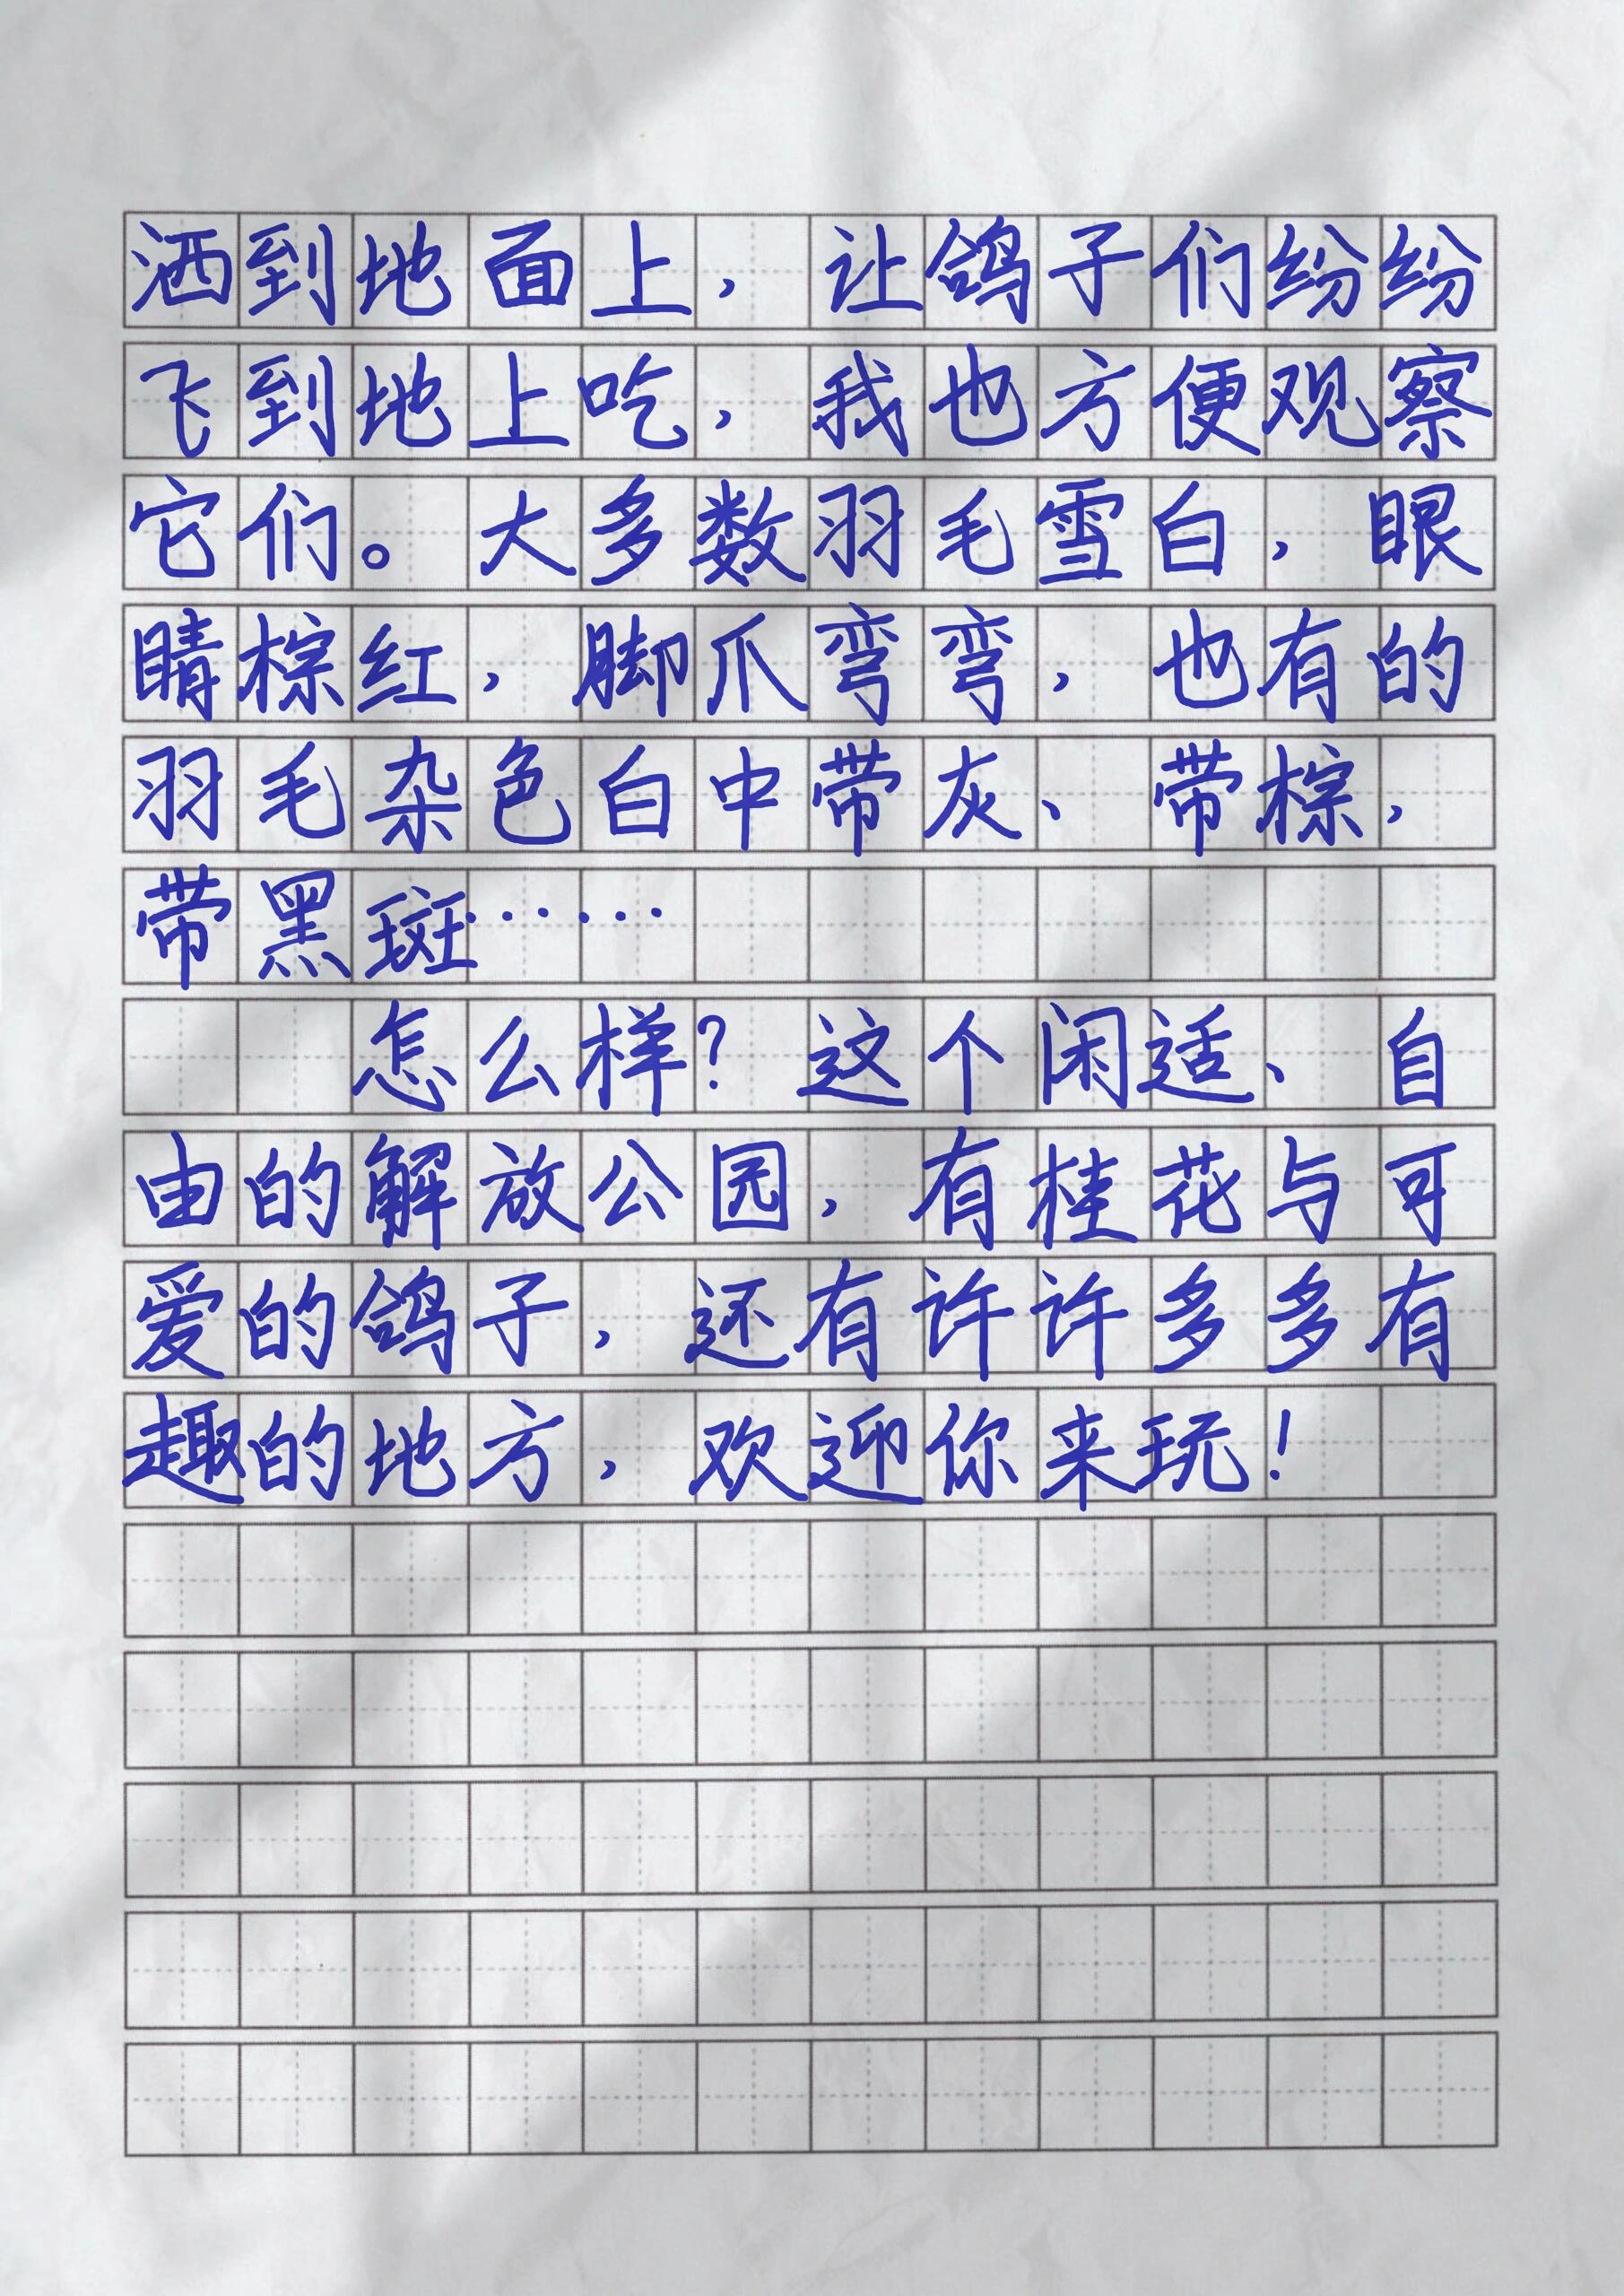 洒到地面上，让鸽子们纷纷
飞到地上吃，我也方便观察
它们。大多数羽毛雪白，眼
睛棕红，脚爪弯弯，也有的
羽毛杂色白中带灰、带棕，
带黑斑……
怎么样？这个闲适、自
由的解放公园，有桂花与可
爱的鸽子，还有许许多多有
趣的地方，欢迎你来玩！